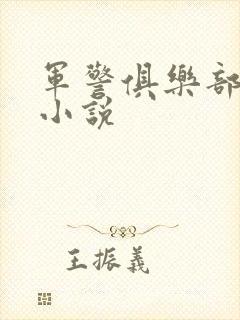 軍警俱樂部
小說
王振義